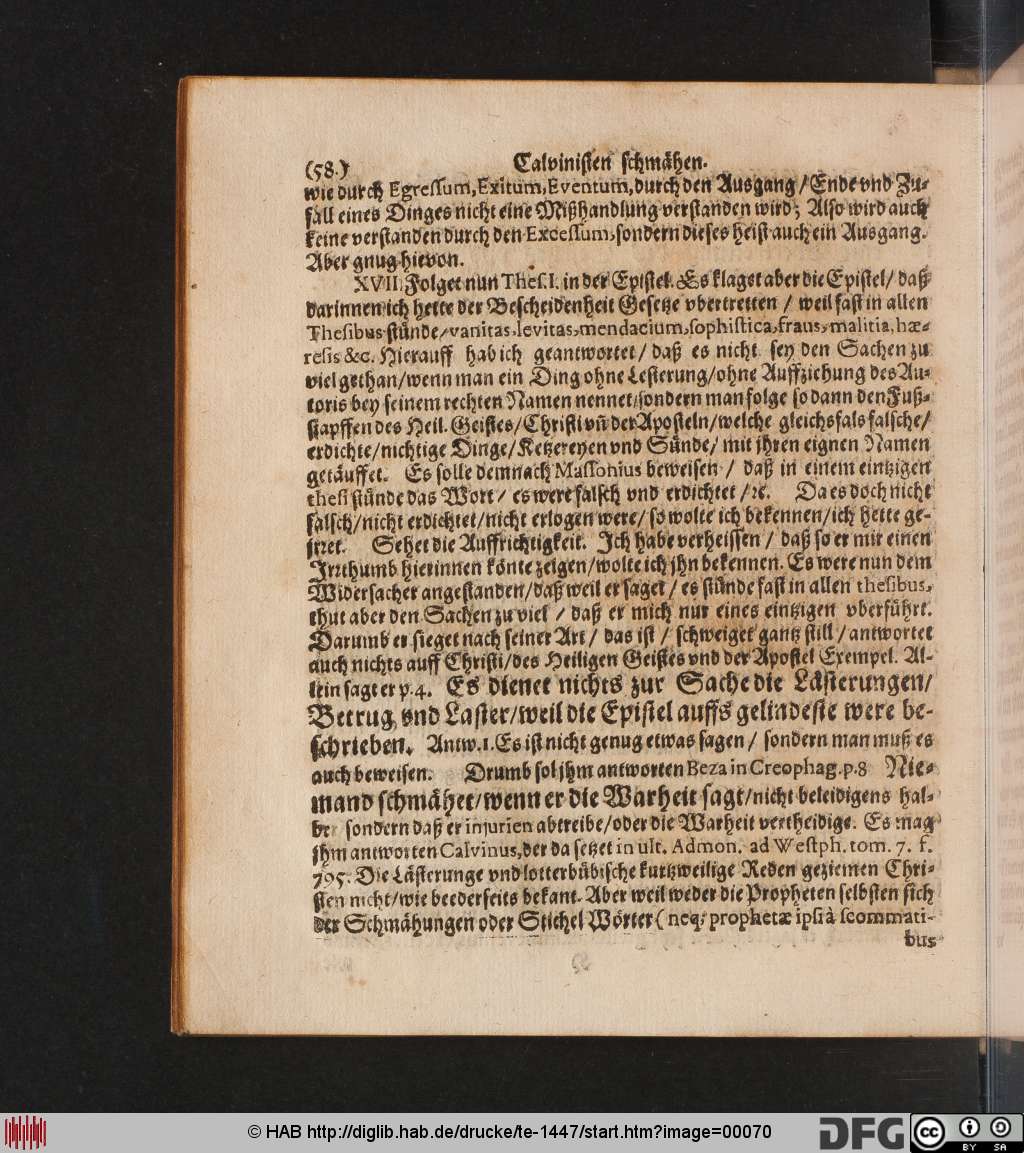 (58.) Calvinisten schmähen.
wie durch Egressum, Exitum, Eventum, durch den Ausgang / Ende vnd Zu-
fall eines Dinges nicht eine Mißhandlung verstanden wird; Also wird auch
keine verstanden durch den Excessum, sondern dieses heist auch ein Ausgang.
Aber gnug hievon.
XVII. Folget nun Thes. I. in der Epistel. Es klagst aber die Epistel / daß
darinnen ich hette der Bescheidenheit Gesetze vbertretten / weil fast in allen
Thesibus stünde / vanitas, levitas, mendacium, sophistica, fraus, malitia, hæ-
resis &c. Hierauff hab ich geantwortet / daß es nicht sey den Sachen zu
viel gethan / wenn man ein Ding ohne Lesterung / ohne Auffziehung des Au-
toris bey seinem rechten Namen nennet / sondern man folge so dann den Fuß-
stapffen des Heil. Geistes / Christi vn̄ der Aposteln / welche gleichsfals falsche /
erdichte / nichtige Dinge / Ketzereyen vnd Sünde / mit jhren eignen Namen
getäuffet. Es solle demnach Massonius beweisen / daß in einem eintzigen
thesi stünde das Wort / es wert falsch vnd erdichtet / ꝛc. Da es doch nicht
falsch / nicht erdichtet / nicht erlogen were / so wolte ich bekennen / ich hette ge-
jrret. Sehet die Auffrichtigkeit. Ich habe verheissen / daß so er mir einen
Irrthumb hierinnen könte zeigen / wolte ich jhn bekennen. Es were nun dem
Widersacher angestanden / daß weil er saget / es stünde fast in allen thesibus,
thut aber den Sachen zu viel / daß er mich nur eines eintzigen vberführt.
Darumb er sieget nach seiner Art / das ist / schweiget gantz still / antwortet
auch nichts auff Christi / des Heiligen Geistes vnd der Apostel Exempel. Al-
lein sagt er p. 4. Es dienet nichts zur Sache die Lästerungen /
Betrug vnd Laster / weil die Epistel auffs gelindeste were be-
schrieben. Antw. 1. Es ist nicht genug etwas sagen / sondern man muß es
auch beweisen. Drumb sol jhm antworten Beza in Creophag. p. 8 Nie-
mand schmähet / wenn er die Warheit sagt / nicht beleidigens hal-
ber sondern daß er injurien abtreibe / oder die Warheit vertheidige. Es mag
jhm antworten Calvinus, der da setzet in ult. Admon. ad Westph. tom. 7. f.
795. Die Lästerunge vnd lotterbübische kurtzweilige Reden geziemen Chri-
sten nicht / wie beederseits bekant. Aber weil weder die Propheten selbsten sich
der Schmähungen oder Stichel Wörter (neq; prophetæ ipsi à scommati-
bus
© HAB http://diglib.hab.de/drucke/te-1447/start.htm?image=00070
DFG
cc
BY SA